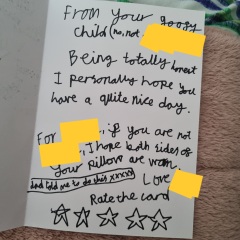 From your goosy
child (no, not
Being totally honest
I personally hope you
have a quite nice day.
For , if you are not
, I hope both sides of
your pillow are warm.
dad told me to do this xxxxx
Love
Rate the card